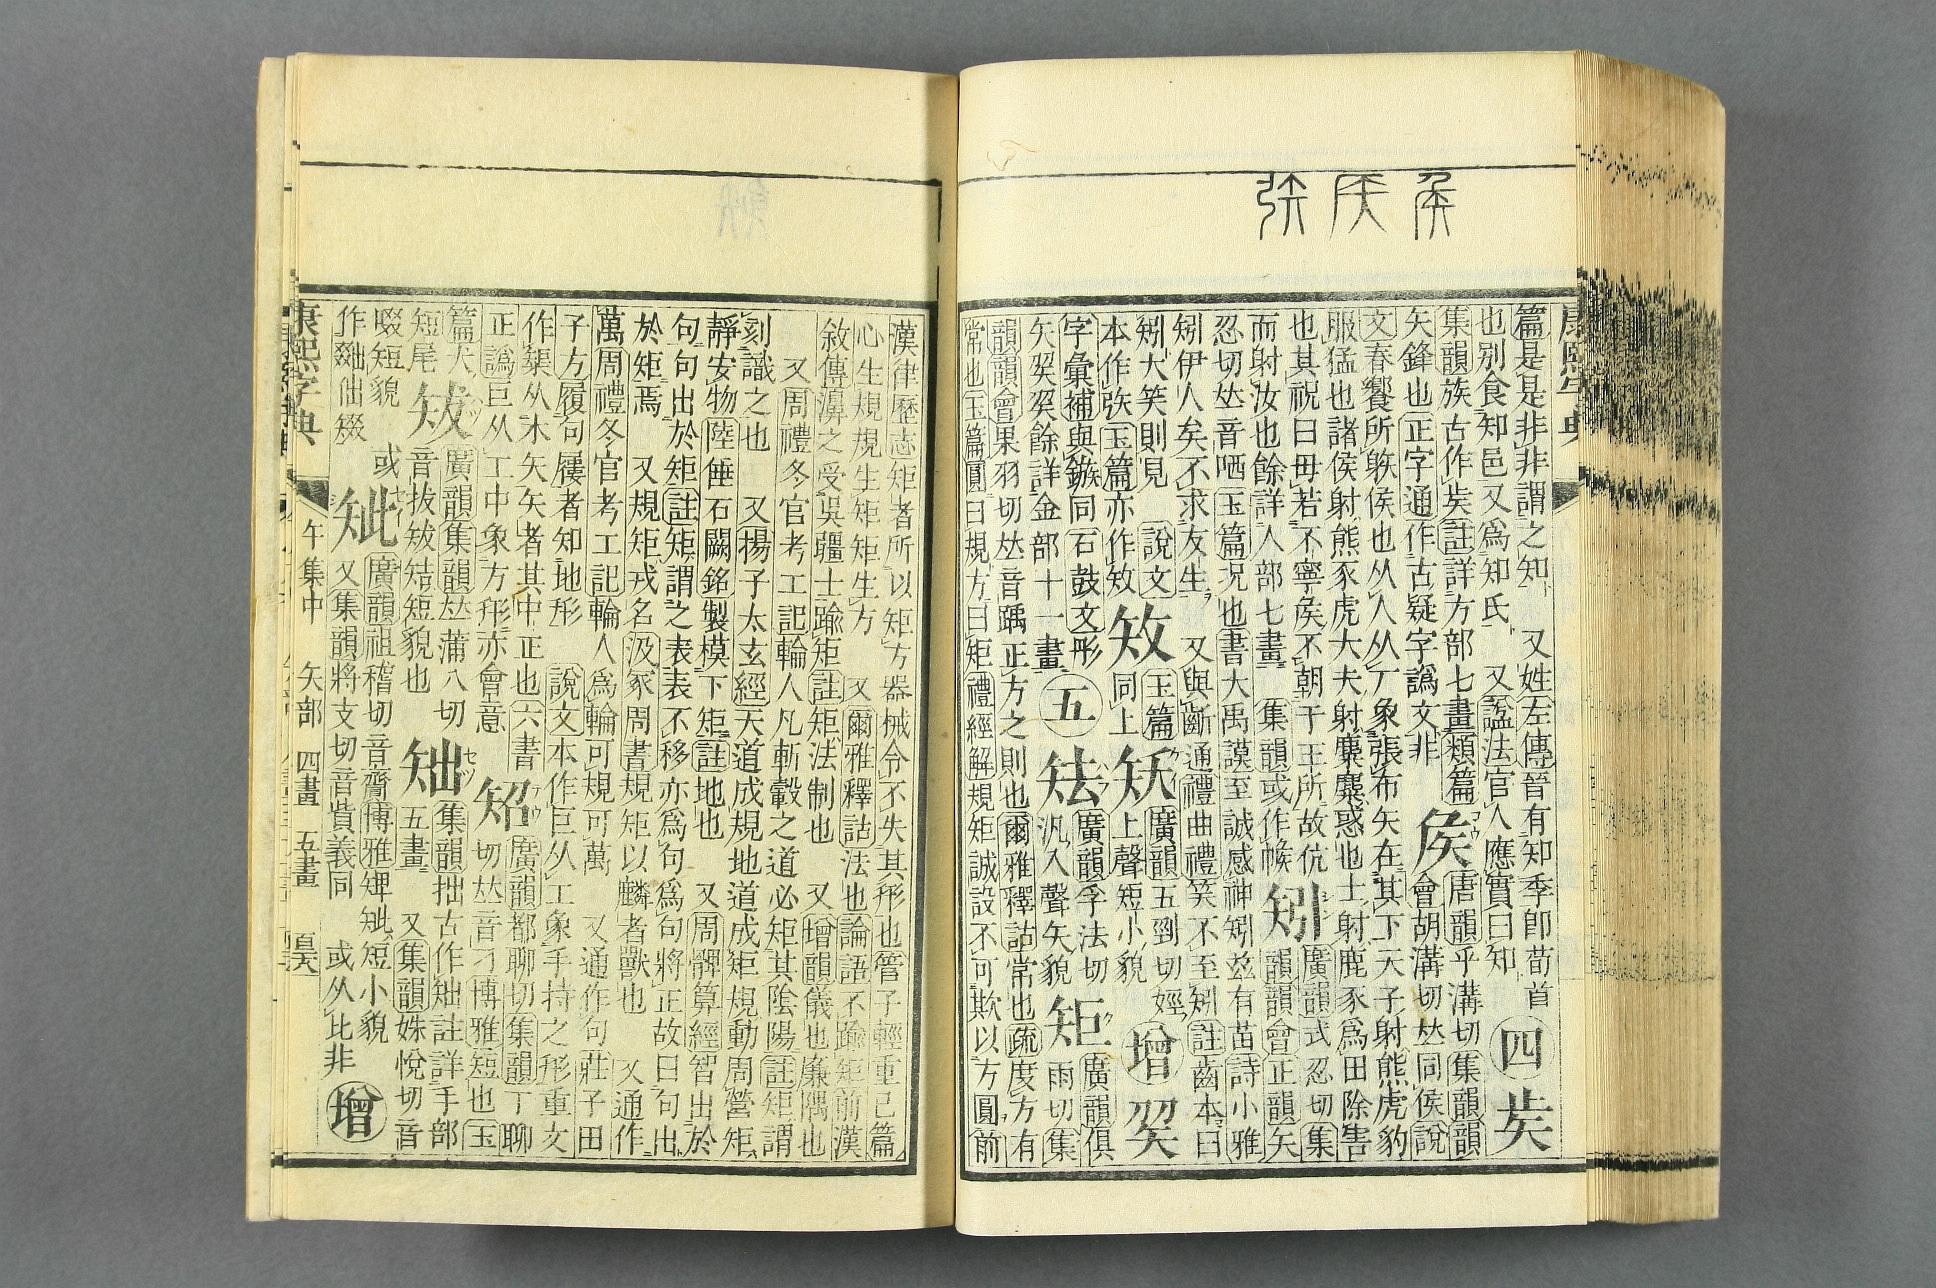 篇是是非非謂之知 又姓左傳晉有知季卽荀首
也別食知邑又爲知氏 又諡法官人應實曰知
四
集韻族古作 註詳方部七畫類篇
矢鋒也正字通作古疑字譌文非
矦
唐韻乎溝切集韻韻
會胡溝切𠀤同侯說
文春饗所躲矦也从人从厂象張布矢在其下天子射熊虎豹
服猛也諸侯射熊豕虎大夫射麋麋惑也士射鹿豕爲田除害
也其祝曰毋若不寧矦不朝于王所故伉
而射汝也餘詳人部七畫 集韻或作帿
矧
廣韻式忍切集
韻韻會正韻矢
忍切𠀤音哂玉篇況也書大禹謨至諴感神矧兹有苗詩小雅
矧伊人矣不求友生 又與齗通禮曲禮笑不至矧註齒本曰
矧大笑則見 說文
本作㢭玉篇亦作
玉篇
同上
廣韻五剄切
上聲短小貌
增
字彙補與鏃同石鼓文形
矢 餘詳金部十一畫
五
廣韻孚法切
汎入聲矢貌
矩
廣韻俱
雨切集
韻韻會果羽切𠀤音踽正方之則也爾雅釋詁常也疏度方有
常也玉篇圓曰規方曰矩禮經解規矩誠設不可欺以方圓前
漢律歷志矩者所以矩方器械令不失其形也管子輕重己篇
心生規規生矩矩生方 又爾雅釋詁法也論語不踰矩前漢
敘傳濞之受吳疆土踰矩註矩法制也 又增韻儀也廉隅也
又周禮冬官考工記輪人凡斬轂之道必矩其陰陽註矩謂
刻識之也 又揚子太玄經天道成規地道成矩規動周營矩
靜安物陸倕石闕銘製模下矩註地也 又周髀算經智出於
句句出於矩註矩謂之表表不移亦爲句爲句將正故曰句出
於矩焉 又規矩戎名汲冢周書規矩以麟者獸也 又通作
萬周禮冬官考工記輪人爲輪可規可萬 又通作句莊子田
子方履句屨者知地形 說文本作巨从工象手持之形重文
作榘从木矢矢者其中正也六書
正譌巨从工中象方形亦會意
䂏
廣韻都聊切集韻丁聊
切𠀤音刁博雅短也玉
篇犬
短尾
廣韻集韻𠀤蒲八切
音拔 短貌也
䂐
集韻拙古作䂐註詳手部
五畫 又集韻姝悅切音
啜短貌 或
作
廣韻祖稽切音齎博雅 短小貌
又集韻將支切音貲義同 或从比非
增
康熙字典
午集中 矢部 四畫 五畫
康熙字典